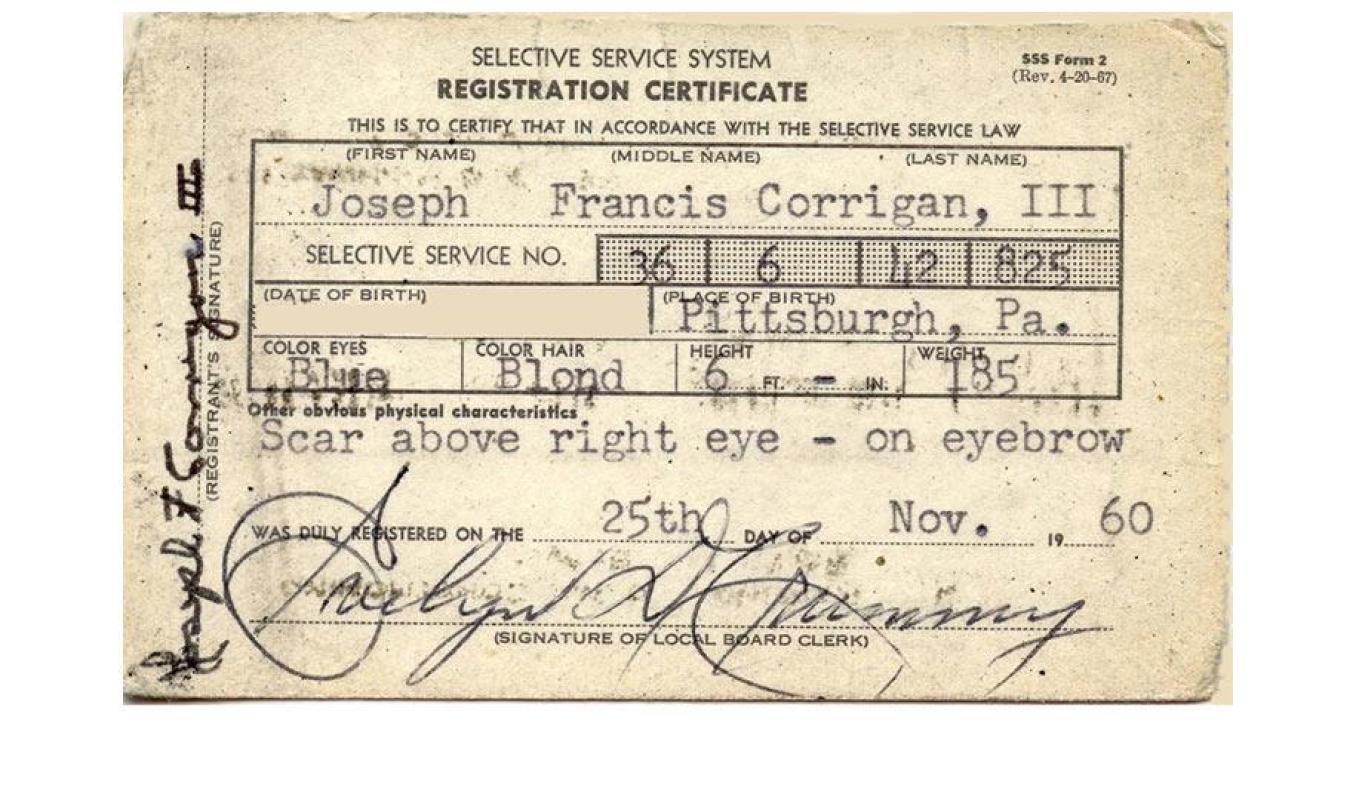 SELECTIVE SERVICE SYSTEM
SSS Form 2
REGISTRATION CERTIFICATE
(Rev. 4-20-67)
THIS IS TO CERTIFY THAT IN ACCORDANCE WITH THE SELECTIVE SERVICE LAW
(FIRST NAME) (MIDDLE NAME) (LAST NAME)
Joseph Francis Corrigan, III
SELECTIVE SERVICE NO. 36 6 42 825
(DATE OF BIRTH) (PLACE OF BIRTH)
Pittsburgh, Pa.
COLOR EYES COLOR HAIR HEIGHT WEIGHT
Blue Blond 6 FT. - IN. 185
Other obvious physical characteristics
Scar above right eye - on eyebrow
WAS DULY REGISTERED ON THE 25th DAY OF Nov. 19 60
(SIGNATURE OF LOCAL BOARD CLERK)
Joseph F Corrigan III
(REGISTRANT'S SIGNATURE)